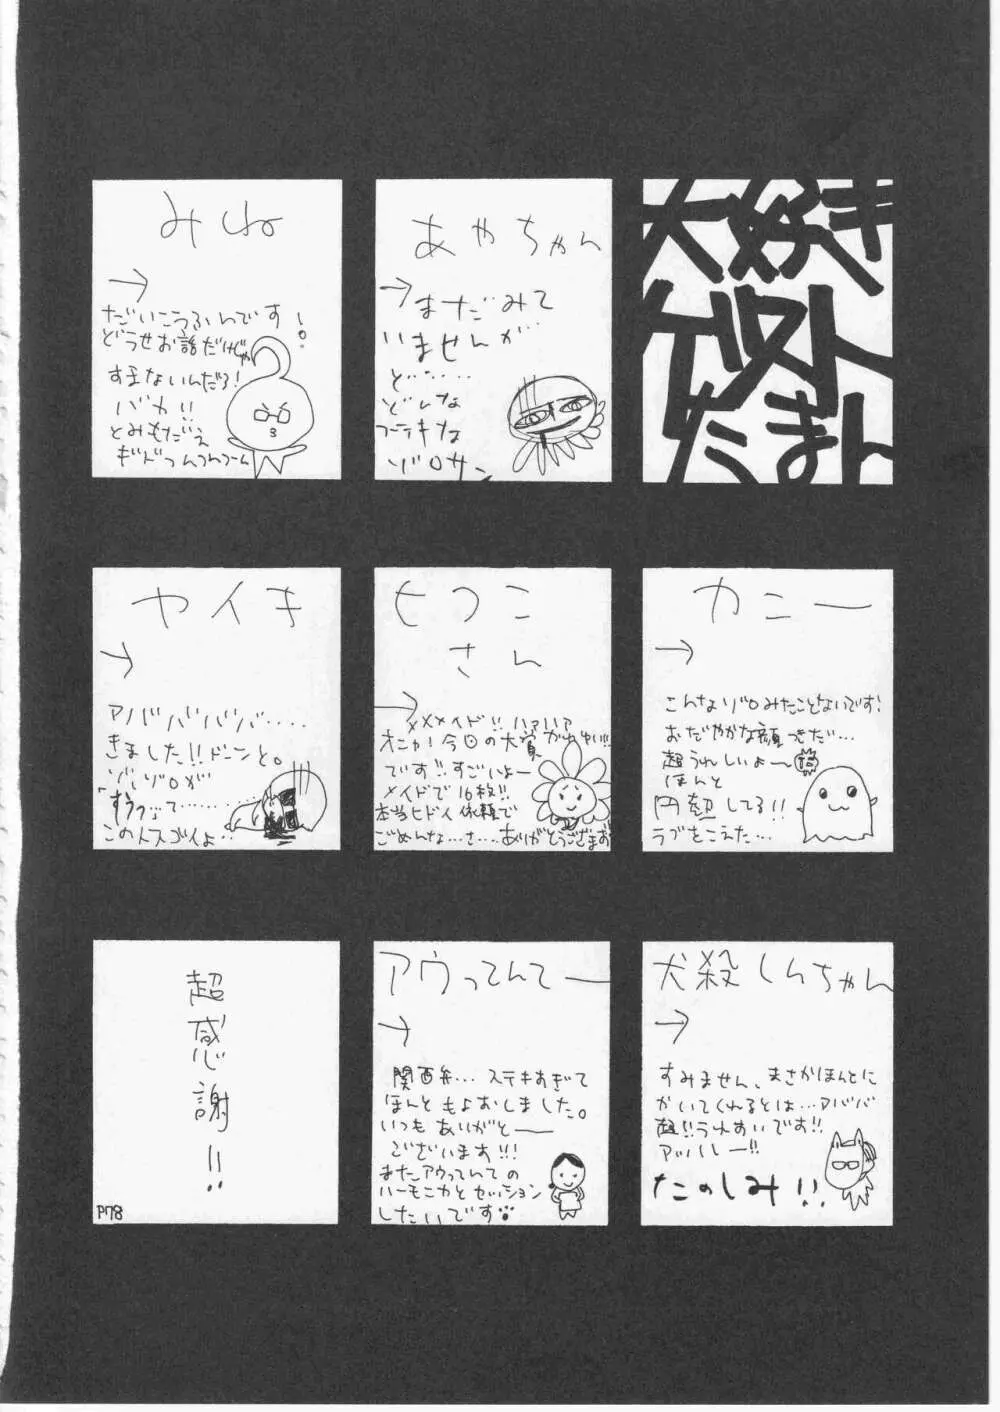 大好き
ゲスト
たまん
あやちゃん
→
まだみて
いませんが…
ど……
どんな
ステキな
ゾロサン
みね
→
だいこうふんです!
どうせお話だけじゃ
すまないんだろ!
バカ!!
とみもだえ
カニー
→
こんなゾロみたことないです!
おだやかな顔つきだ…
超うれしいよー
ほんと
円熱してる!!
ラブをこえた…
ヒフコ
さん
→
メメメイド!! ハァハァ
です!! すごいよー
メイドで16枚!!
本当ヒドイ依頼で
ごめんな…さ…ありがとうござまお
ヤイキ
→
アババババ....
きました!! ドーンと。
ゾ、ゾロが
「すうっ」て……
この人スゴイよ…
犬殺しんちゃん
→
すみません、まさかほんとに
かいてくれるとは…アババ
超!! うれすいです!!
アッハレー!!
たのしみ!!
アウってんてー
→
関西弁… ステキすぎて
ほんともよおしました。
いつもありがとー
ございます!!!
またアウってんての
ハーモニカとセッション
したいです
超感謝!!
P78